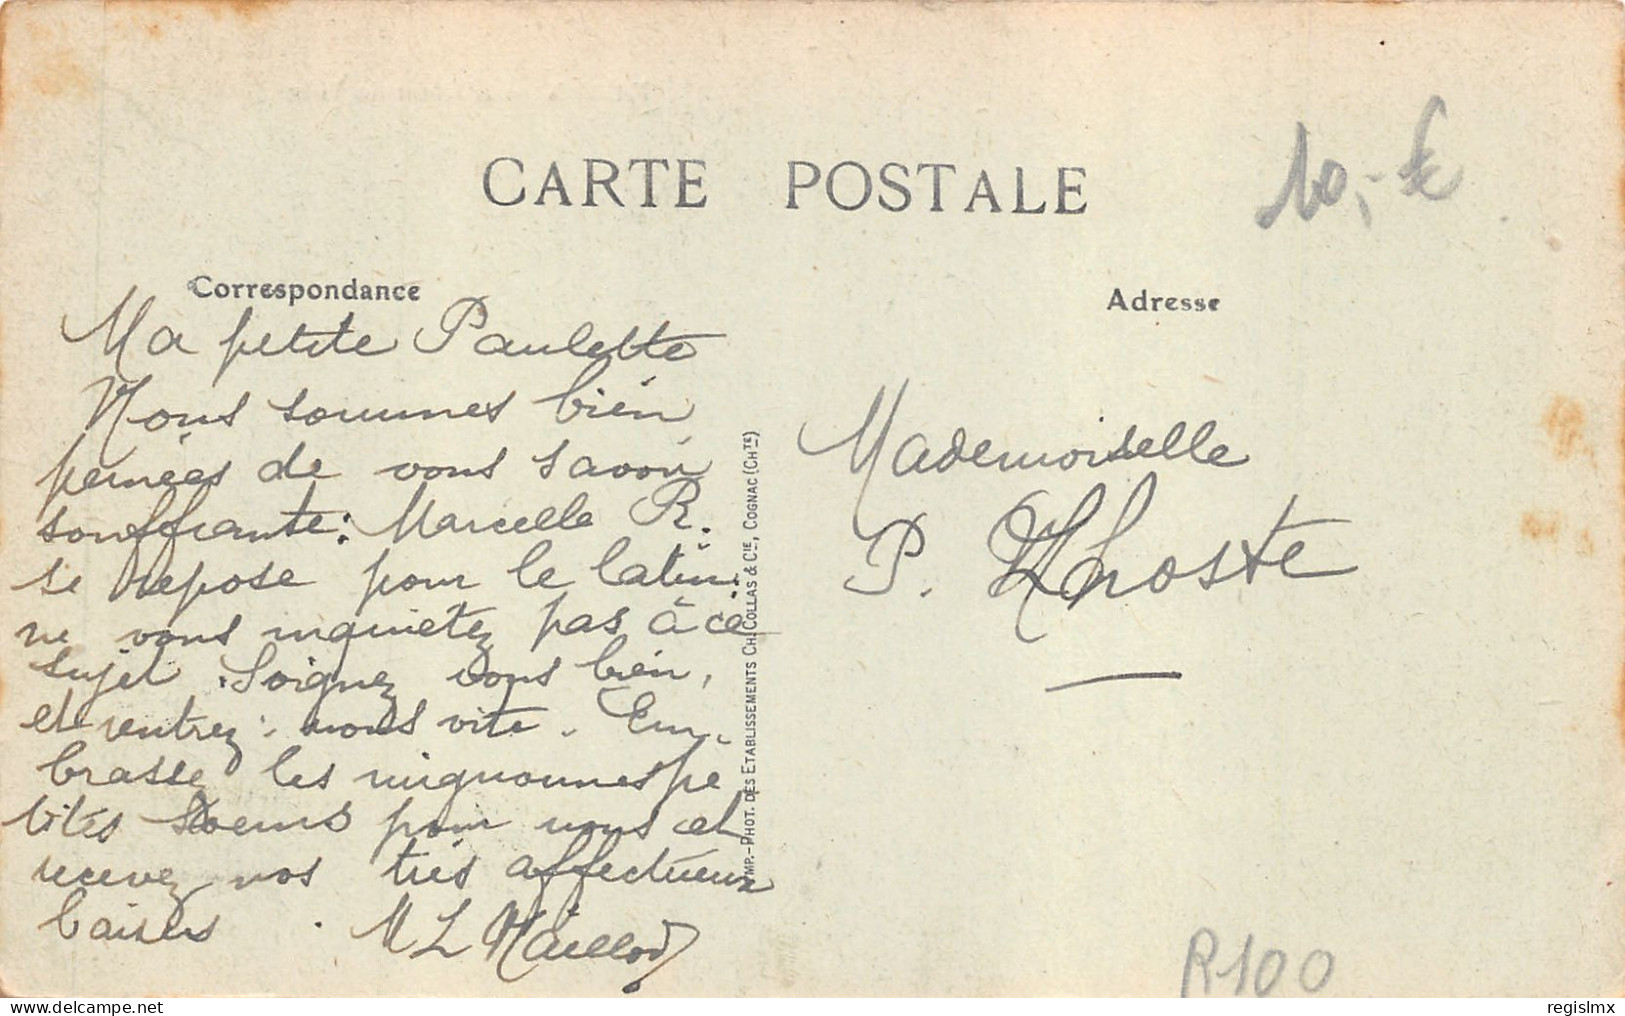 CARTE POSTALE
10,-€
Correspondance
Adresse
Ma petite Paulette
Nous sommes bien
peinées de vous savoir
souffrante: Marcelle R.
se repose pour le latin.
ne vous inquietez pas à ce
sujet. Soignez vous bien,
et rentrez-nous vite. Em-
brasse les mignonnes pe
tites soeurs pour nous et
recevez nos très affectueux
baisers. M L
Mademoiselle
P. Lhoste
IMP.-PHOT. DES ETABLISSEMENTS CH. COLLAS & CIE, COGNAC (CHTE)
R100
regislmx